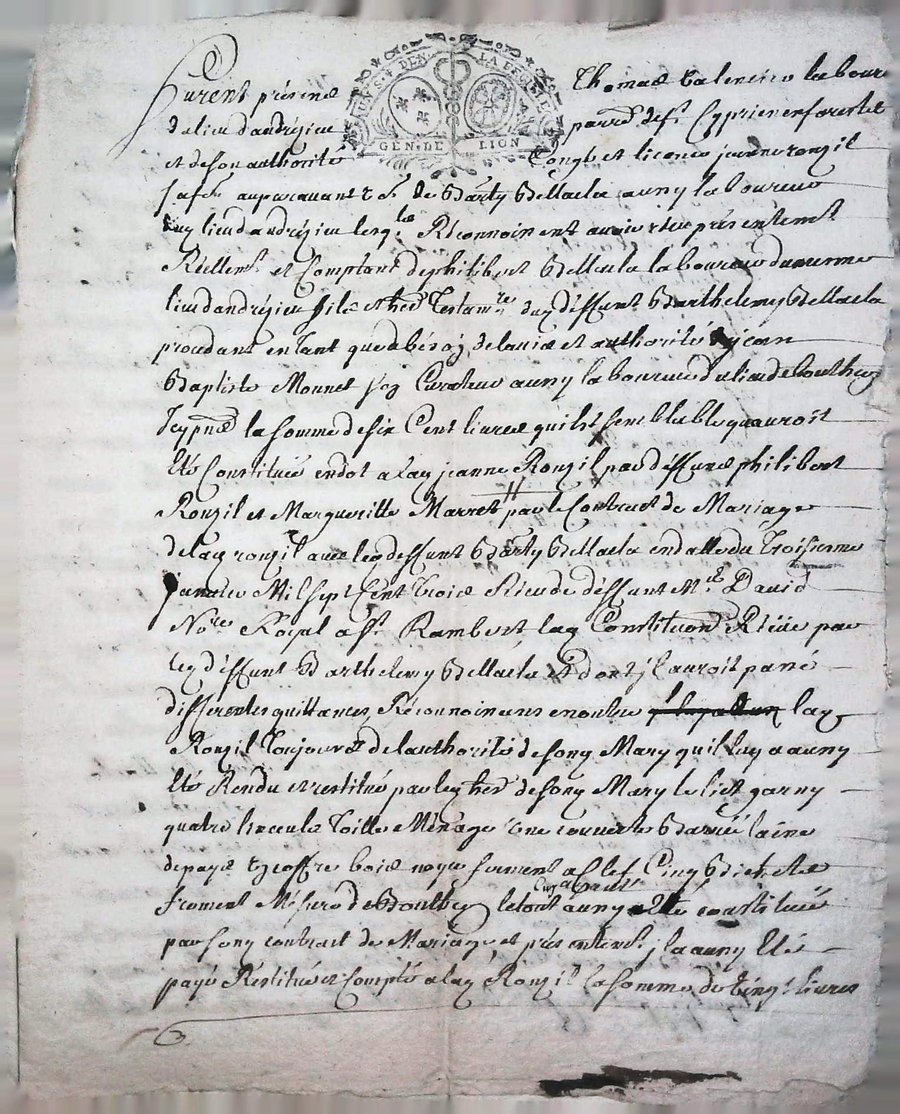 DEUX S. 4 DEN. LA FEUILLE
GEN. DE LION
furent presens Thomas Valencier laboure
du lieu d'andrézieu parroe de St Cyprien en forest et
et de son authorité Congé et licence jeanne rouzil
sa fe auparavant de Barty Bellacla aussy laboureur
lieu d'andrézieu lesqls Réconnoissent avoir présentemt
Réellemt et Comptant de philibert Bellacla laboureur du mesme
lieu d'andrézieu fils et her Testamre du deffunt Barthelemy Bellacla
procédant en tant que de bésoin de lavis et authorité de jean
Baptiste Monnet son Curateur aussy laboureur du lieu de Bouthéon
la somme de six Cent livres qui est semblable quauroit
Eté Constituée en dot a la jeanne Rouzil par deffunts philibert
Rouzil et Margueritte Marret par le Contract de Mariage
de la rouzil avec le deffunt Barty Bellacla en datte du Troisieme
janvier Mil sept Cent Trois Réçu de deffunt Me David
Nore Royal a St Rambert, la Constitution Réçüe par
le deffunt Barthelemy Bellacla Et dont jl auroit passé
differentes quittances, Réconnoissans en outre la
Rouzil Toujours de lauthorité de son Mary qu'il luy a aussy
Eté Rendu et restitué par le her de son Mary le lict garny
quatre linceuls Toille Ménage Une couverte laine
de pays coffre bois noyer fermant a clef Cinq Bichets
froment Mésure de Bouthéon le tout aussy constitué
par son contract de Mariage et présentemt jl a aussy Eté
payé Réstitué et Compté a la Rouzil la somme de vingt livres